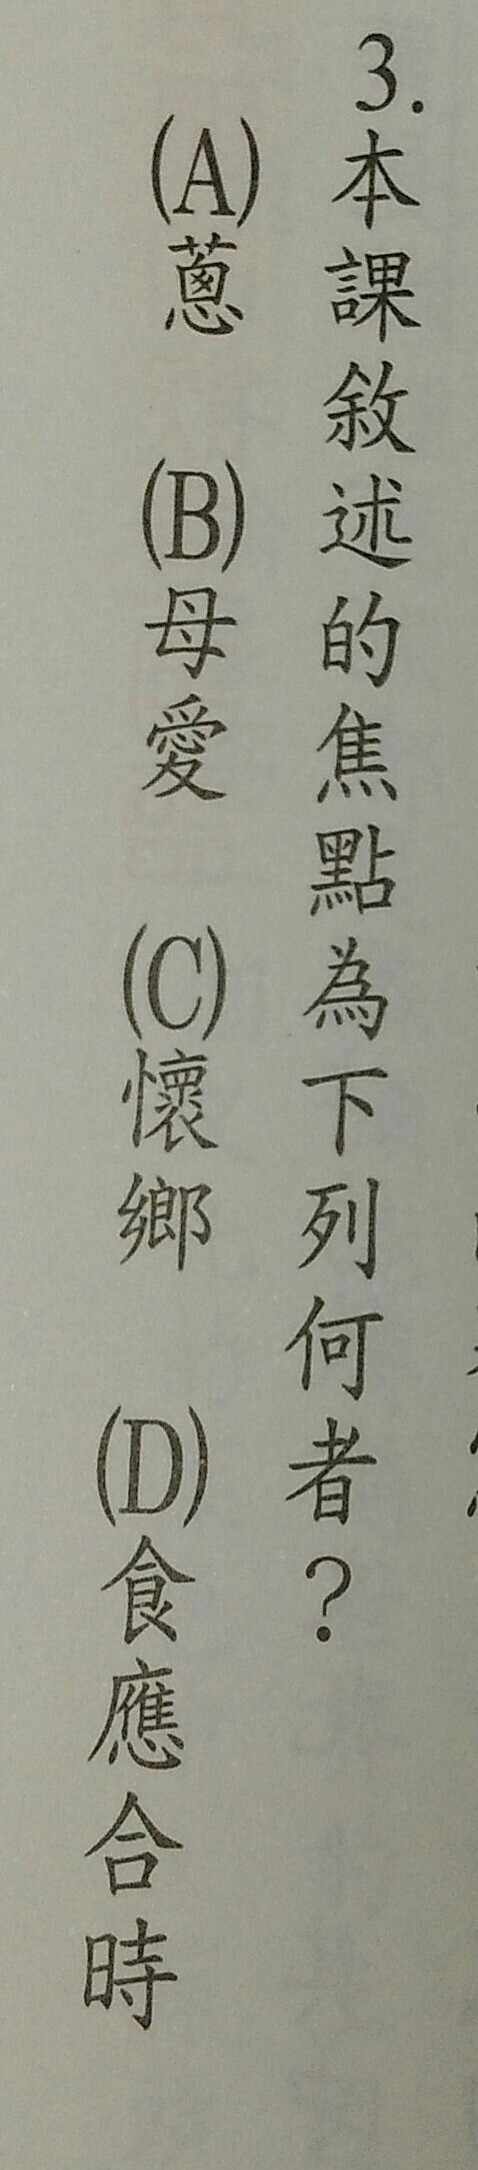 3.本課敘述的焦點為下列何者？
(A)蔥 (B)母愛 (C)懷鄉 (D)食應合時